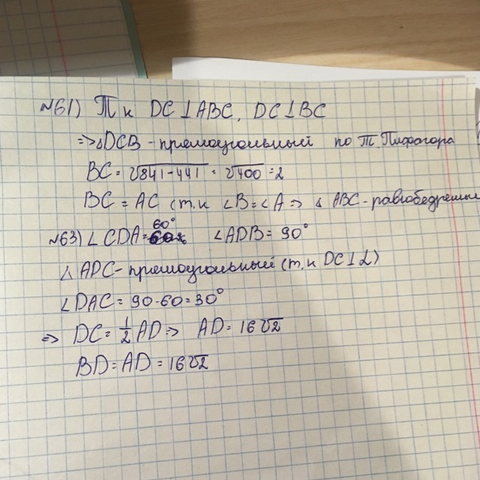 №61) Т к DC⊥ABC, DC⊥BC
=>△DCB - прямоугольный по т. Пифагора
BC = √841-441 = √400 = 2
BC = AC (т.к ∠B=∠A => △ ABC - равнобедренн
№63) ∠CDA = 60° ∠ADB = 90°
△ADC - прямоугольный (т.к DC⊥L)
∠DAC = 90-60 = 30°
=> DC = 1/2 AD => AD = 16√2
BD = AD = 16√2